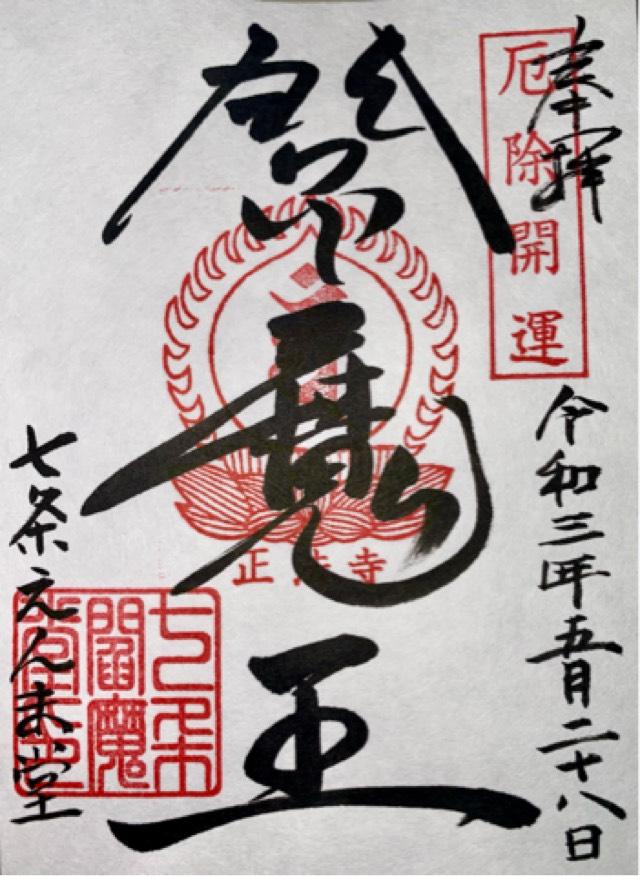 奉拝
厄除開運
令和三年五月二十八日
魔王
正法寺
七条えんま堂
七条
閻魔
堂印